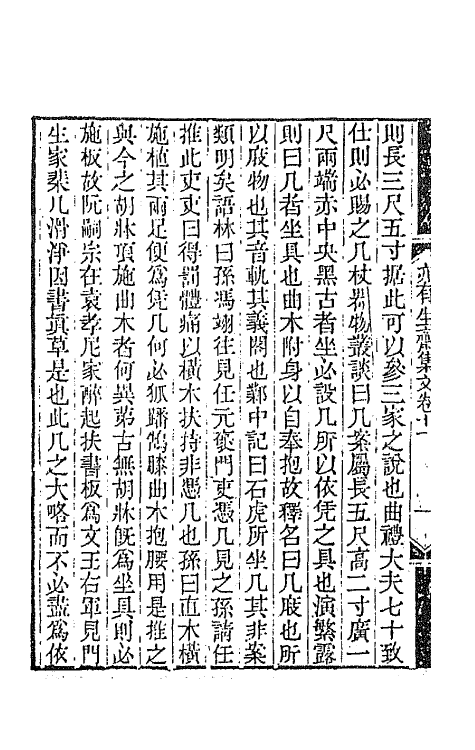 則長三尺五寸据此可以參三家之說也曲禮大夫七十致
仕則必賜之几杖剡物叢談曰几案屬長五尺高二寸廣一
尺兩端赤中央黑古者坐必設几所以依凭之具也演繁露
則曰几者坐具也曲木附身以自奉抱故釋名曰几庪也所
以庪物也其音軌其義閣也鄴中記曰石虎所坐几其非案
類明矣語林曰孫馮翊往見任元褒門吏憑几見之孫請任
推此吏吏曰得罰體痛以橫木扶持非憑几也孫曰直木橫
施植其兩足便為凭几何必狐蹯鵠膝曲木抱腰用是推之
與今之胡牀頂施曲木者何異第古無胡牀旣為坐具則必
施板故阮嗣宗在袁孝尼家醉起扶書板為文王右軍見門
生家棐几滑淨因書眞草是也此几之大略而不必盡為依
亦有生齋集文卷十一
一